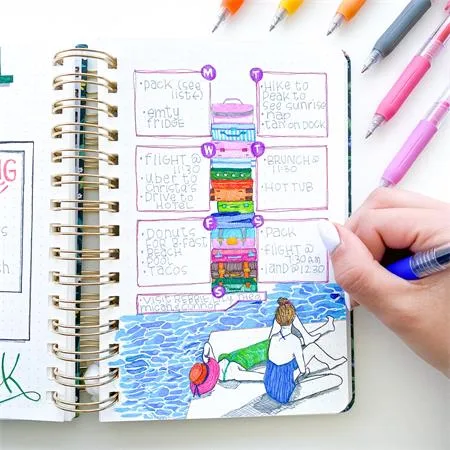 NG
s
s
ch
k
M
T
•pack (see
list)
•emty
fridge
•Hike to
Peak to
see sunrise
•nap
•tan on dock
W
T
•flight @
11:30
•uber to
christa's
•Drive to
Hotel
•BRUNCH @
11:30
•HOT TUB
F
S
•Donuts
for B-fast
•Beach
•pool
•tacos
•pack
•flight @
7:30 am
•land @ 12:30
S
•visit